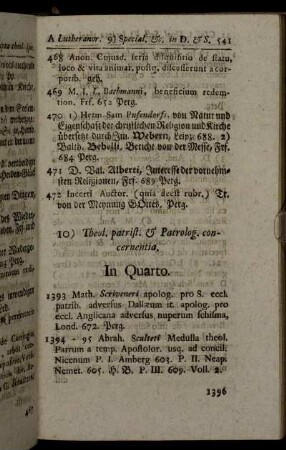 A Lutheranor. 9) Special, &c. in D. & S. 541
468 Anon. Cujusd. seria disquisitio de statu,
loco & vita animar. postq; discesserunt a cor-
porib. geh.
469 M. J. L. Bachmanni, beneficium redem-
tion. Frf. 652 Perg.
470 1) Herrn Sam Pufendorfs, von Natur und
Eigenschaft der christlichen Religion und Kirche
übersetzt durch Im. Webern, Leipz. 688. 2)
Balth. Bebelii, Bericht von der Messe, Frf.
684 Perg.
471 D. Val. Alberti, Interesse der vornehm-
sten Religionen, Frf. 689 Perg.
472 Incerti Auctor. (quia deest rubr.) Tr.
von der Meynung GOttes, Perg.
10) Theol. patrist. & Patrolog. con-
cernentia,
In Quarto.
1393 Math. Scriveneri apolog. pro S. eccl.
patrib. adversus Dallæum it. apolog. pro
eccl. Anglicana adversus nuperum schisma,
Lond. 672. Perg.
1394 - 95 Abrah. Sculteti Medulla theol.
Patrum a temp. Apostolor. usq. ad concil.
Nicenum P. I. Amberg 603. P. II. Neap.
Nemet. 605. H. B. P. III. 609. Voll. 2.
1396